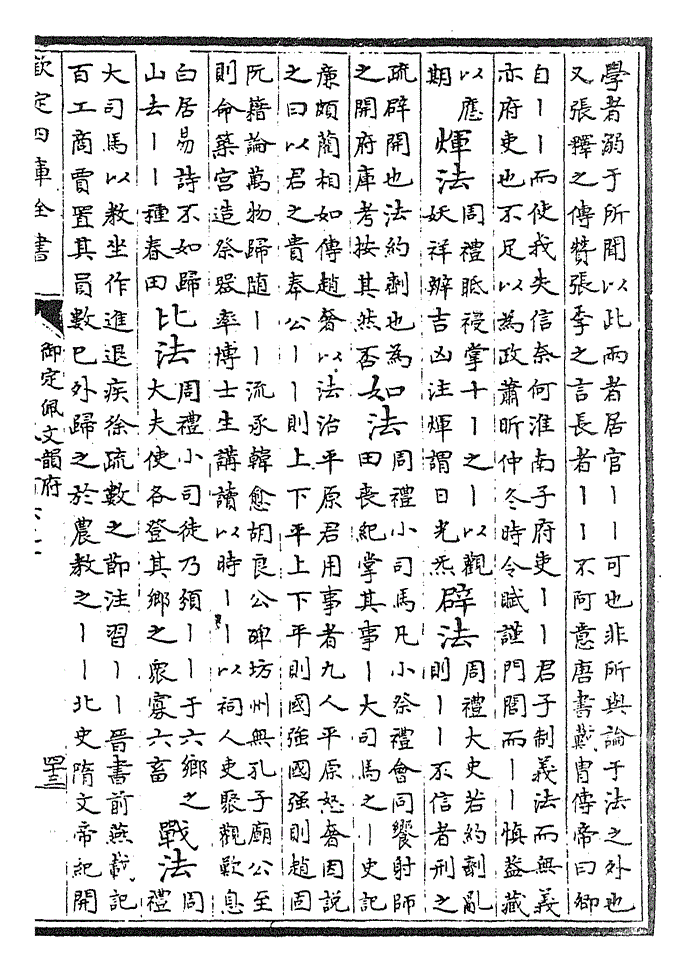 學者溺于所聞以此兩者居官丨丨可也非所與論于法之外也
又張釋之傳贊張季之言長者丨丨不阿意唐書戴冑傳帝曰卿
自丨丨而使我失信奈何淮南子府吏丨丨君子制義法而無義
亦府吏也不足以為政蕭昕仲冬時令賦謹門閭而丨丨慎葢藏
以應
期
煇法
周禮眡祲掌十丨之丨以觀
妖祥辨吉凶注煇謂日光炁
辟法
周禮大史若約劑亂
則丨丨不信者刑之
疏辟開也法約劑也為
之開府庫考按其然否
如法
周禮小司馬凡小祭禮會同饗射師
田喪紀掌其事丨大司馬之丨史記
廉頗藺相如傳趙奢以法治平原君用事者九人平原怒奢因說
之曰以君之貴奉公丨丨則上下平上下平則國強國强則趙固
阮籍論萬物歸随丨丨流承韓愈胡良公碑坊州無孔子廟公至
則命築宮造祭器率博士生講讀以時丨丨以祠人吏聚觀歎息
白居易詩不如歸
山去丨丨種春田
比法
周禮小司徒乃頒丨丨于六鄉之
大夫使各登其鄉之衆寡六畜
戰法
周
禮
大司馬以教坐作進退疾徐疏數之節注習丨丨晉書前燕載記
百工商賈置其員數已外歸之於農教之丨丨北史隋文帝紀開
欽定四庫全書
御定佩文韻府
四十三